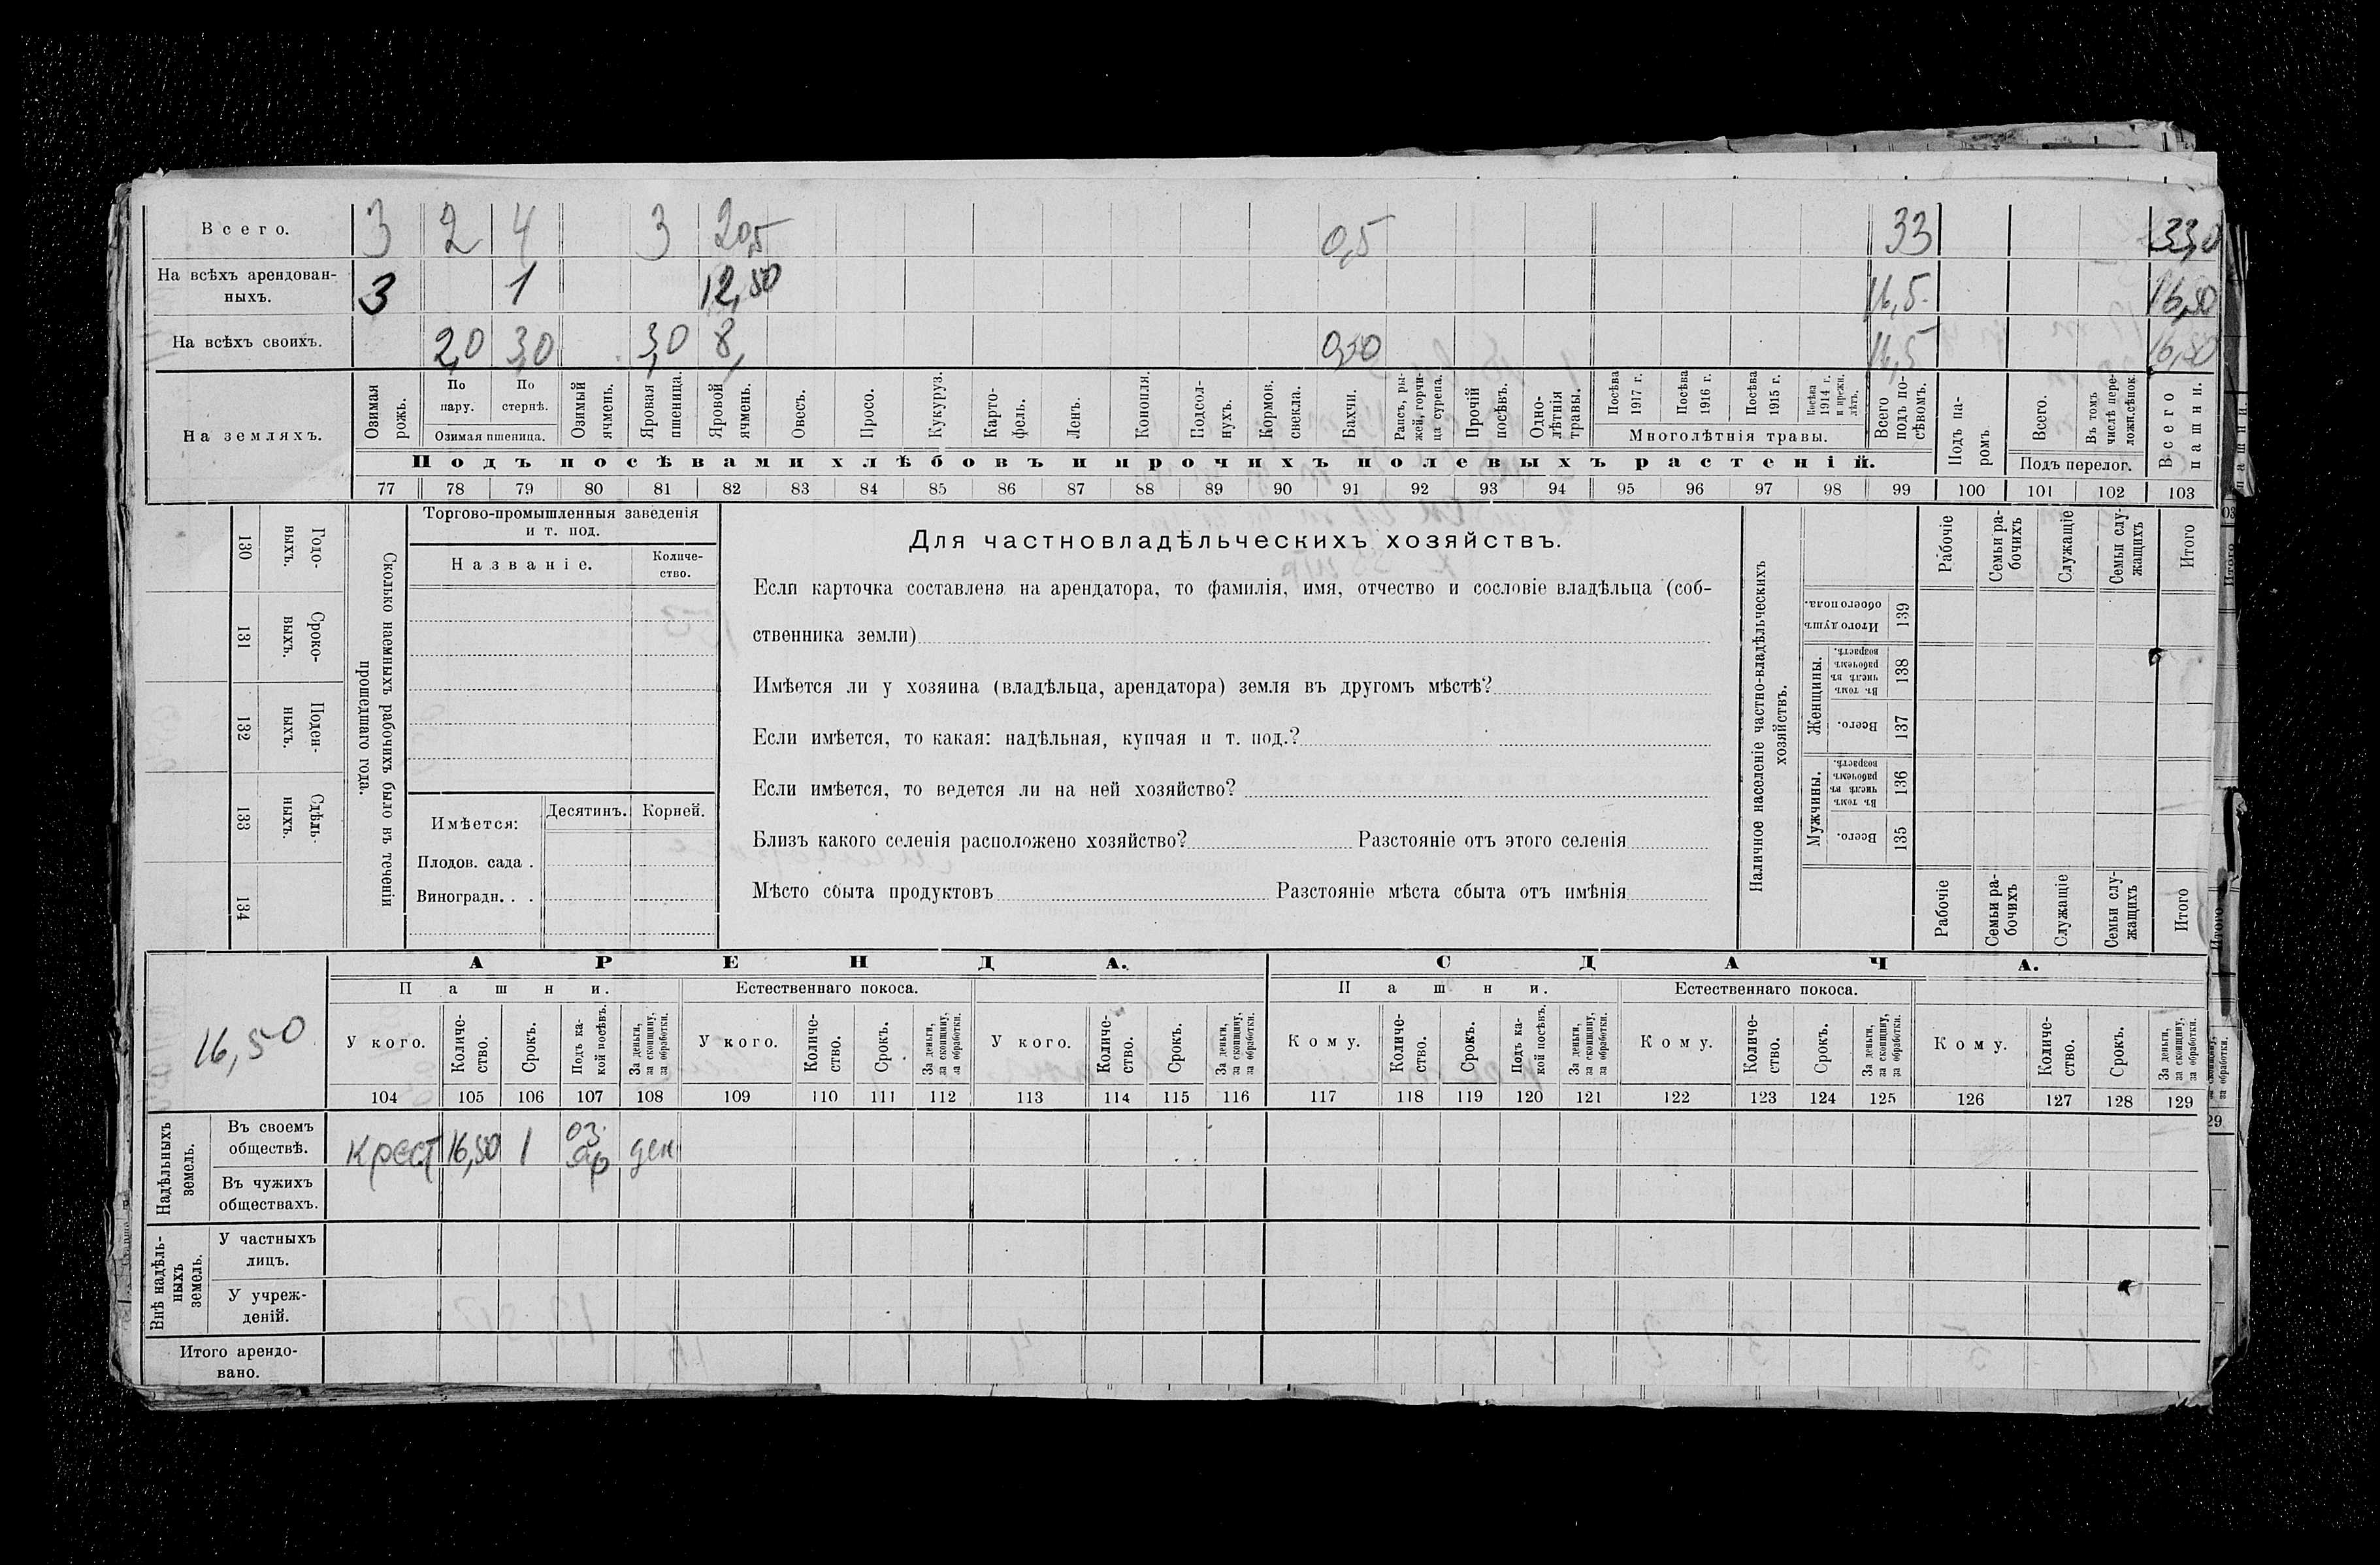 Всего. 3 2 4 3 20,5 0,5 33 33,0
На всѣхъ арендован-
ныхъ. 3 1 12,50 16,5. 16,50
На всѣхъ своихъ. 2,0 3,0 3,0 8, 0,50 16,5 16,50
На земляхъ.
Озимая рожь.
По пару.
По стернѣ.
Озимая пшеница.
Озимый ячмень.
Яровая пшеница.
Яровой ячмень.
Овесъ.
Просо.
Кукуруз.
Карто-
фель.
Ленъ.
Конопля.
Подсол-
нухъ.
Кормов.
свекла.
Бахчи.
Рапсъ, ры-
жей, горчи-
ца сурепа.
Прочій
посѣвъ.
Одно-
лѣтнія
травы.
Посѣва
1917 г.
Посѣва
1916 г.
Посѣва
1915 г.
Посѣва
1914 г.
и прежн.
лѣтъ.
Многолѣтнія травы.
Всего
подъ по-
сѣвомъ.
Подъ па-
ромъ.
Всего.
Въ томъ
числѣ пере-
ложн.сѣнок.
Подъ перелог.
Всего
пашни.
Подъ посѣвами хлѣбовъ и прочихъ полевыхъ растеній.
77 78 79 80 81 82 83 84 85 86 87 88 89 90 91 92 93 94 95 96 97 98 99 100 101 102 103
130 Годо-
выхъ.
131 Сроко-
выхъ.
132 Поден-
ныхъ.
133 Сдѣль-
ныхъ.
134
Сколько наемныхъ рабочихъ было въ теченіи
прошедшаго года.
Торгово-промышленныя заведенія
и т. под.
Названіе.
Количе-
ство.
Имѣется:
Десятинъ. Корней.
Плодов. сада .
Виноградн. . .
Для частновладѣльческихъ хозяйствъ.
Если карточка составлена на арендатора, то фамилія, имя, отчество и сословіе владѣльца (соб-
ственника земли)
Имѣется ли у хозяина (владѣльца, арендатора) земля въ другомъ мѣстѣ?
Если имѣется, то какая: надѣльная, купчая и т. под.?
Если имѣется, то ведется ли на ней хозяйство?
Близъ какого селенія расположено хозяйство? Разстояніе отъ этого селенія
Мѣсто сбыта продуктовъ Разстояніе мѣста сбыта отъ имѣнія
Наличное населеніе частно-владѣльческихъ
хозяйствъ.
Рабочіе
Семьи ра-
бочихъ
Служащіе
Семьи слу-
жащихъ
Итого
Итого душъ
обоего пола.
139
Женщины.
Въ томъ
числѣ въ
рабочемъ
возрастѣ.
138
Всего.
137
Мужчины.
Въ томъ
числѣ въ
рабочемъ
возрастѣ.
136
Всего.
135
Рабочіе
Семьи ра-
бочихъ
Служащіе
Семьи слу-
жащихъ
Итого
16,50
АРЕНДА. СДАЧА.
Пашни. Естественнаго покоса. Пашни. Естественнаго покоса.
У кого.
Количе-
ство.
Срокъ.
Подъ ка-
кой посѣвъ.
За деньги,
за скопщину,
за обработки.
У кого.
Количе-
ство.
Срокъ.
За деньги,
за скопщину,
за обработки.
У кого.
Количе-
ство.
Срокъ.
За деньги,
за скопщину,
за обработки.
Кому.
Количе-
ство.
Срокъ.
Подъ ка-
кой посѣвъ.
За деньги,
за скопщину,
за обработки.
Кому.
Количе-
ство.
Срокъ.
За деньги,
за скопщину,
за обработки.
Кому.
Количе-
ство.
Срокъ.
За деньги,
за скопщину,
за обработки.
104 105 106 107 108 109 110 111 112 113 114 115 116 117 118 119 120 121 122 123 124 125 126 127 128 129
Надѣльныхъ
земель.
Въ своемъ
обществѣ.
Крест 16,50 1 оз. яр ден
Въ чужихъ
обществахъ.
Внѣ надѣль-
ныхъ
земель.
У частныхъ
лицъ.
У учреж-
деній.
Итого арендо-
вано.